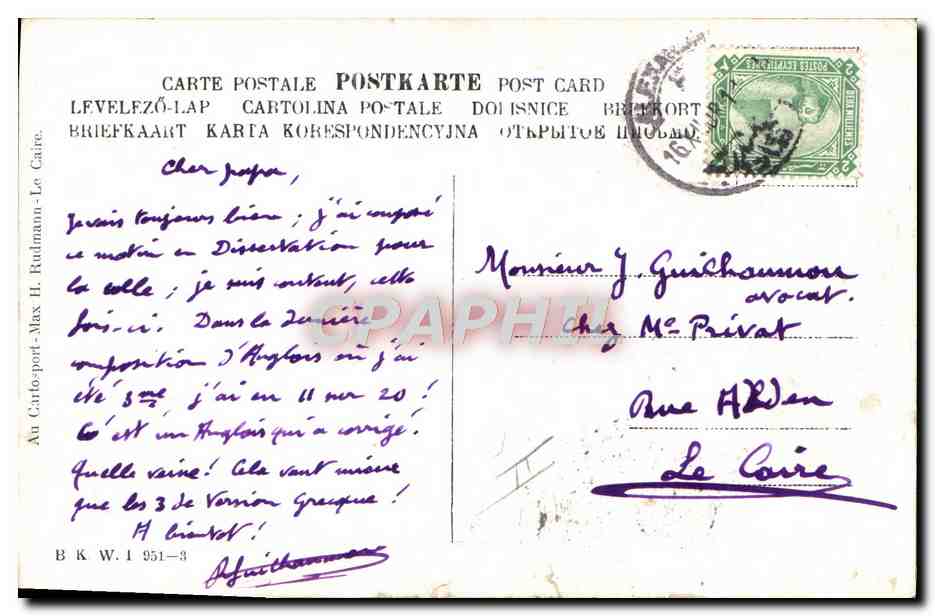 CARTE POSTALE POSTKARTE POST CARD
LEVELEZŐ-LAP CARTOLINA POSTALE DOPISNICE BRIEFKORT
BRIEFKAART KARTA KORESPONDENCYJNA ОТКРЫТОЕ ПИСЬМО
Au Carto-sport-Max H. Rudmann-Le Caire.
POSTES EGYPTIENNES
DEUX MILLIEMES
2
2
Cher papa,
toujours bien ; j'ai composé
ce matin en Dissertation pour
la colle ; je suis content, cette
fois-ci. Dans la dernière
composition d'Anglais où j'ai
été 3me j'ai eu 11 sur 20 !
C'est un Anglais qui a corrigé.
Quelle veine ! Cela vaut mieux
que les 3 de Version Grecque !
A bientôt !
Guilhaumon
B. K. W. I 951-3
Monsieur J. Guilhaumon
avocat.
Chez Me Privat
Rue
Le Caire
II
CPAPHIL